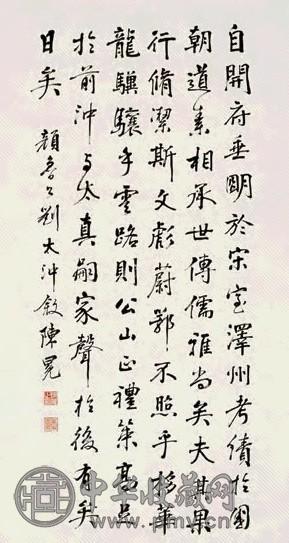 自開府垂明於宋室澤州考績於國
朝道素相承世傳儒雅尚矣夫其果
行脩潔斯文彪蔚鄂不照乎移華
龍驥驤乎雲路則公山正禮策高足
於前沖与太真嗣家聲於後有矣
日矣 顏魯公劉太沖敘陳冕
中华收藏网